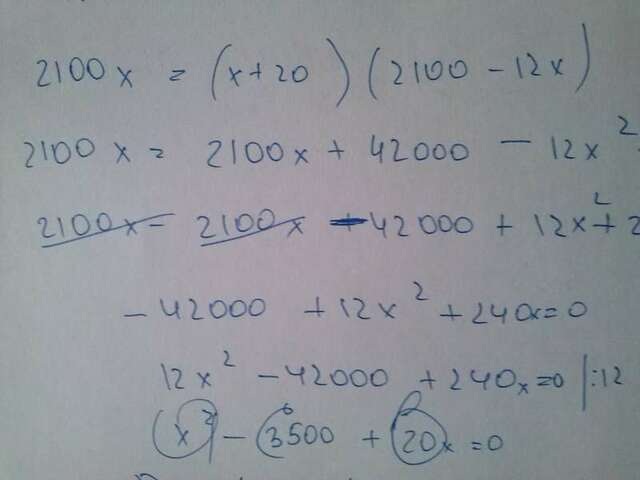 2100x = (x+20)(2100-12x)
2100x = 2100x + 42000 - 12x²
2100x - 2100x - 42000 + 12x² + 2
- 42000 + 12x² + 240x = 0
12x² - 42000 + 240x = 0 |:12
x² - 3500 + 20x = 0